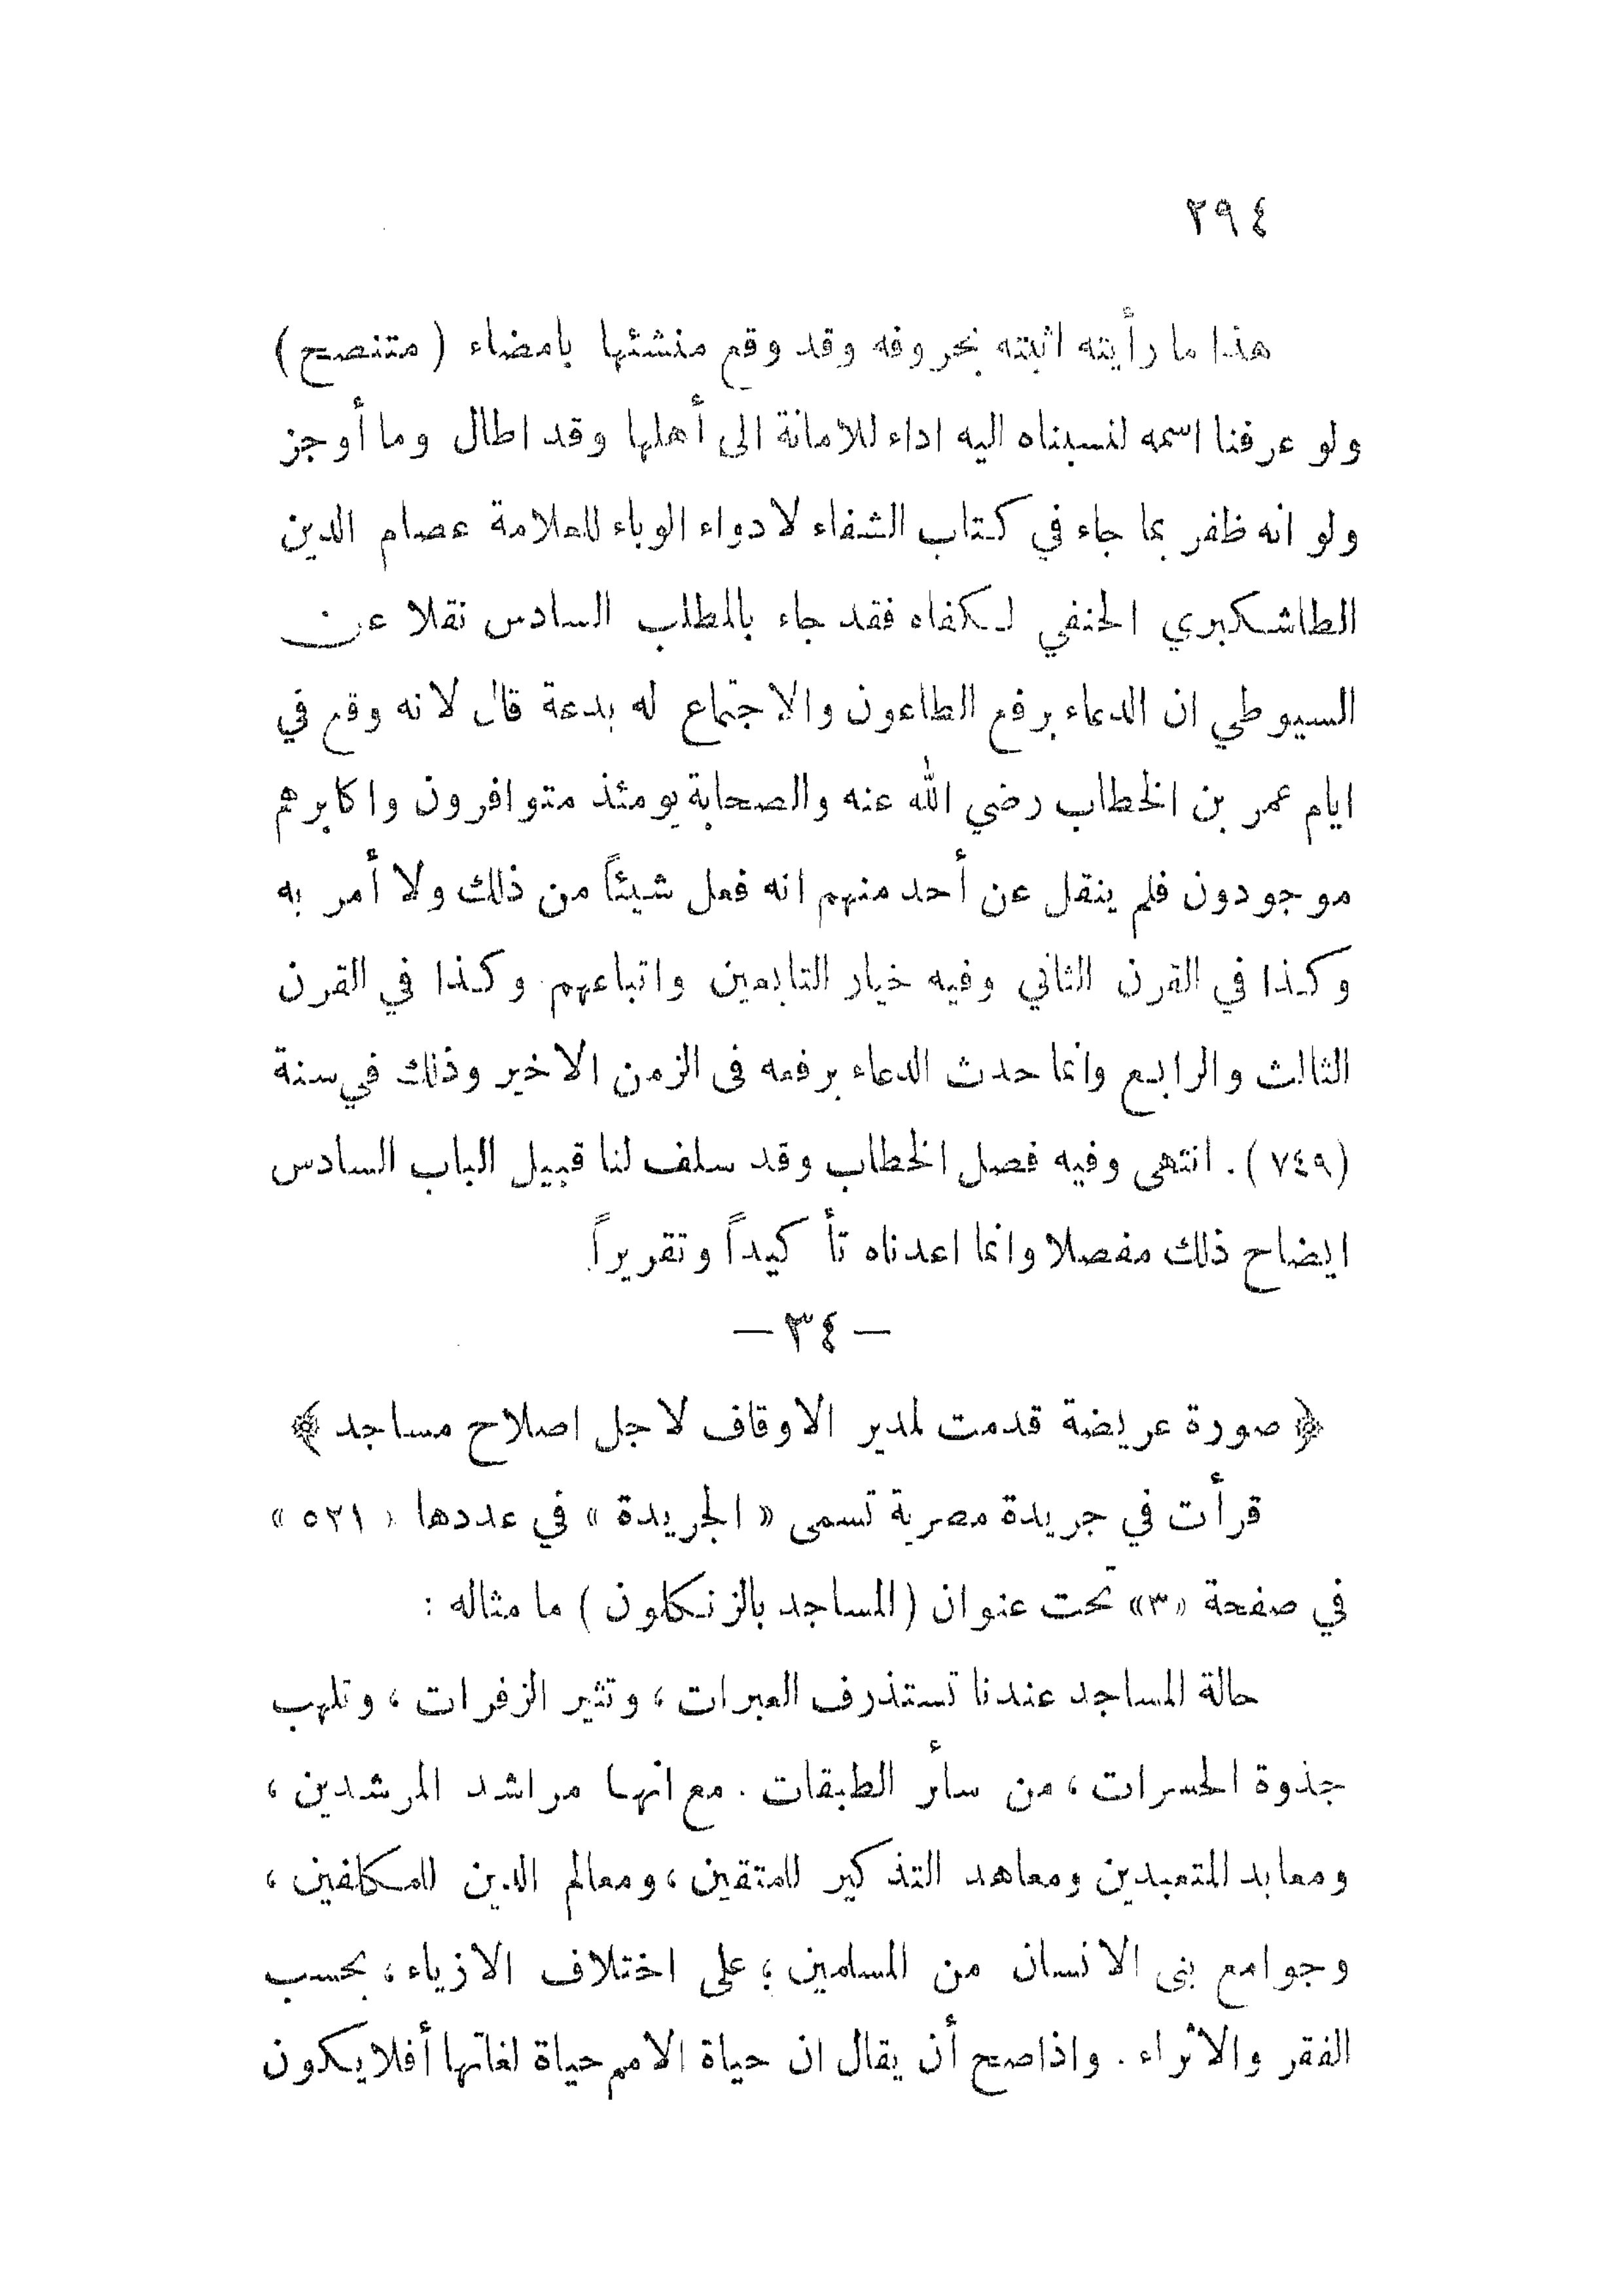 ٢٩٤
هذا ما رأيته اثبته بحروفه وقد وقع منشئها بامضاء (متنصح)
ولو عرفنا اسمه لنسبناه اليه اداء للامانة الى أهلها وقد اطال وما أوجز
ولو انه ظفر بما جاء في كتاب الشفاء لادواء الوباء للعلامة عصام الدين
الطاشكبري الحنفي لكفاه فقد جاء بالمطلب السادس نقلا عن
السيوطي ان الدعاء برفع الطاعون والاجتماع له بدعة قال لانه وقع في
ايام عمر بن الخطاب رضي الله عنه والصحابة يومئذ متوافرون واكابرهم
موجودون فلم ينقل عن أحد منهم انه فعل شيئاً من ذلك ولا أمر به
وكذا في القرن الثاني وفيه خيار التابعين واتباعهم وكذا في القرن
الثالث والرابع وانما حدث الدعاء برفعه فى الزمن الاخير وذلك في سنة
(٧٤٩). انتهى وفيه فصل الخطاب وقد سلف لنا قبيل الباب السادس
ايضاح ذلك مفصلا وانما اعدناه تأكيداً وتقريراً.
— ٣٤ —
﴿ صورة عريضة قدمت لمدير الاوقاف لاجل اصلاح مساجد ﴾
قرأت في جريدة مصرية تسمى « الجريدة » في عددها « ٥٢١ »
في صفحة «٣» تحت عنوان (المساجد بالزنكلون) ما مثاله :
حالة المساجد عندنا تستذرف العبرات ، وتثير الزفرات ، وتلهب
جذوة الحسرات ، من سأر الطبقات . مع انها مراشد المرشدين ،
ومعابد المتعبدين ومعاهد التذكير للمتقين ، ومعالم الدين للمكلفين ،
وجوامع بنى الانسان من المسلمين ؛ على اختلاف الازياء ، بحسب
الفقر والاثراء . واذا صح أن يقال ان حياة الامم حياة لغاتها أفلا يكون